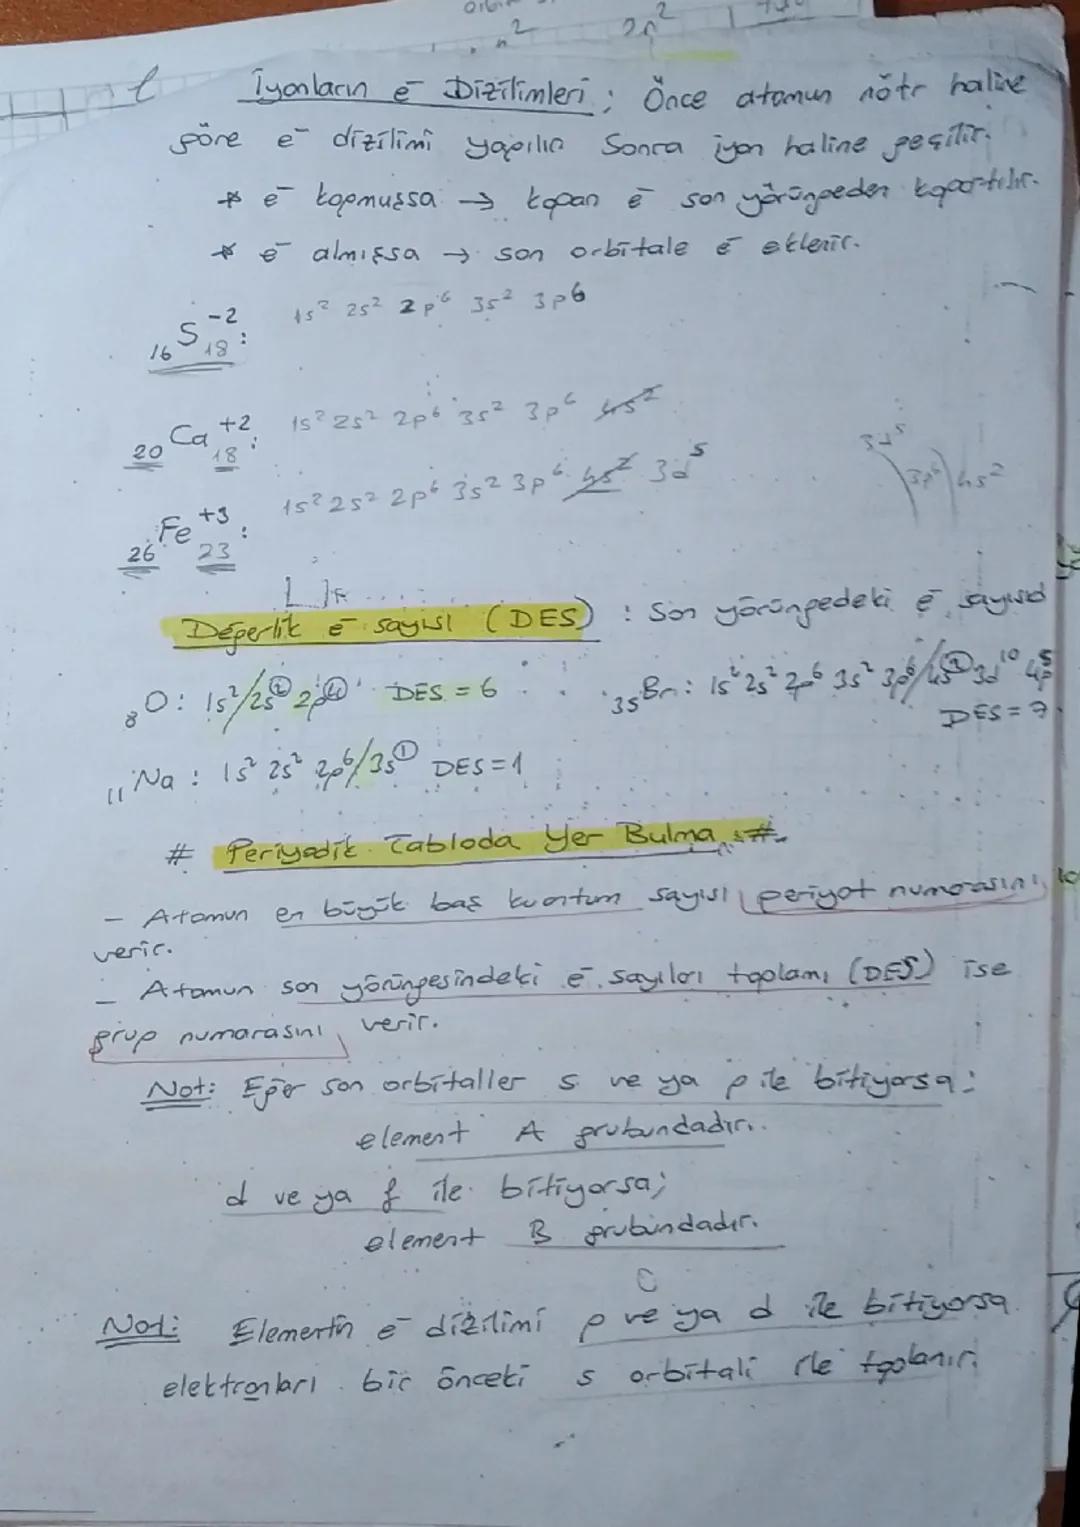 n² 2n²
İyonların e⁻ Dizilimleri ; Önce atomun nötr haline
göre e⁻ dizilimi yapılır Sonra iyon haline geçilir.
* e⁻ kopmuşsa → kopan e⁻ son yörüngeden kopartılır.
* e⁻ almışsa → son orbitale e⁻ eklenir.
₁₆S₁₈⁻² : 1s² 2s² 2p⁶ 3s² 3p⁶
₂₀Ca₁₈⁺² : 1s² 2s² 2p⁶ 3s² 3p⁶ 4s²
₂₆Fe₂₃⁺³ : 1s² 2s² 2p⁶ 3s² 3p⁶ 4s² 3d⁵
3d⁵ 3p⁶ 4s²
Değerlik e⁻ sayısı (DES) : Son yörüngedeki e⁻ sayısıd
₈O : 1s²/2s② 2p④ DES = 6
₃₅Br : 1s² 2s² 2p⁶ 3s² 3p⁶/4s② 3d¹⁰ 4p⁵
DES = 7
₁₁Na : 1s² 2s² 2p⁶/3s① DES = 1
# Periyodik Tabloda Yer Bulma : #
- Atomun en büyük baş kuantum sayısı periyot numarasını
verir.
- Atomun son yörüngesindeki e⁻ sayıları toplamı (DES) ise
grup numarasını verir.
Not: Eğer son orbitaller s ve ya p ile bitiyorsa;
element A grubundadır.
d ve ya f ile bitiyorsa;
element B grubundadır.
Not: Elementin e⁻ dizilimi p ve ya d ile bitiyorsa
elektronları bir önceki s orbitali ile toplanır.